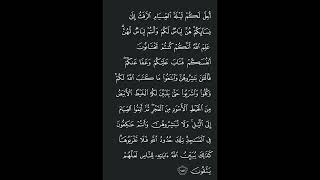 أُحِلَّ لَكُمْ لَيْلَةَ ٱلصِّيَامِ ٱلرَّفَثُ إِلَىٰ
نِسَآئِكُمْ هُنَّ لِبَاسٌ لَّكُمْ وَأَنتُمْ لِبَاسٌ لَّهُنَّ
عَلِمَ ٱللَّهُ أَنَّكُمْ كُنتُمْ تَخْتَانُونَ
أَنفُسَكُمْ فَتَابَ عَلَيْكُمْ وَعَفَا عَنكُمْ
فَٱلْـَٰٔنَ بَـٰشِرُوهُنَّ وَٱبْتَغُوا۟ مَا كَتَبَ ٱللَّهُ لَكُمْ
وَكُلُوا۟ وَٱشْرَبُوا۟ حَتَّىٰ يَتَبَيَّنَ لَكُمُ ٱلْخَيْطُ ٱلْأَبْيَضُ
مِنَ ٱلْخَيْطِ ٱلْأَسْوَدِ مِنَ ٱلْفَجْرِ ثُمَّ أَتِمُّوا۟ ٱلصِّيَامَ
إِلَى ٱلَّيْلِ وَلَا تُبَـٰشِرُوهُنَّ وَأَنتُمْ عَـٰكِفُونَ
فِى ٱلْمَسَـٰجِدِ تِلْكَ حُدُودُ ٱللَّهِ فَلَا تَقْرَبُوهَا
كَذَٰلِكَ يُبَيِّنُ ٱللَّهُ ءَايَـٰتِهِۦ لِلنَّاسِ لَعَلَّهُمْ
يَتَّقُونَ ١٨٧